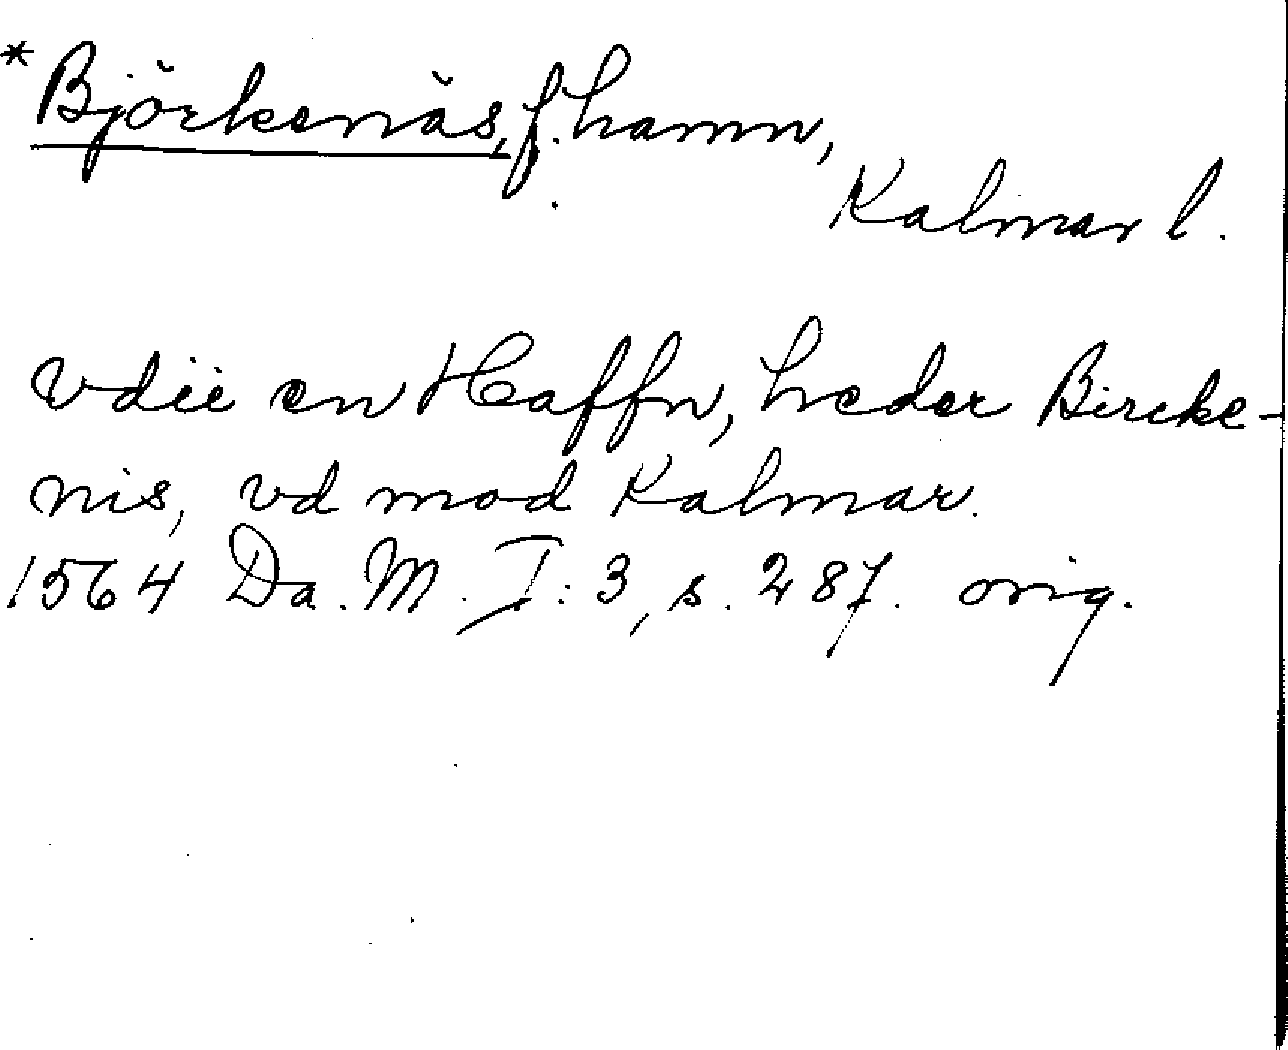 *Björkenäs, f. hamn,
Kalmar l.
vdii en Haffn, heder Bircke-
nis, vd mod Kalmar.
1564 Da. M. I: 3, s. 287. orig.